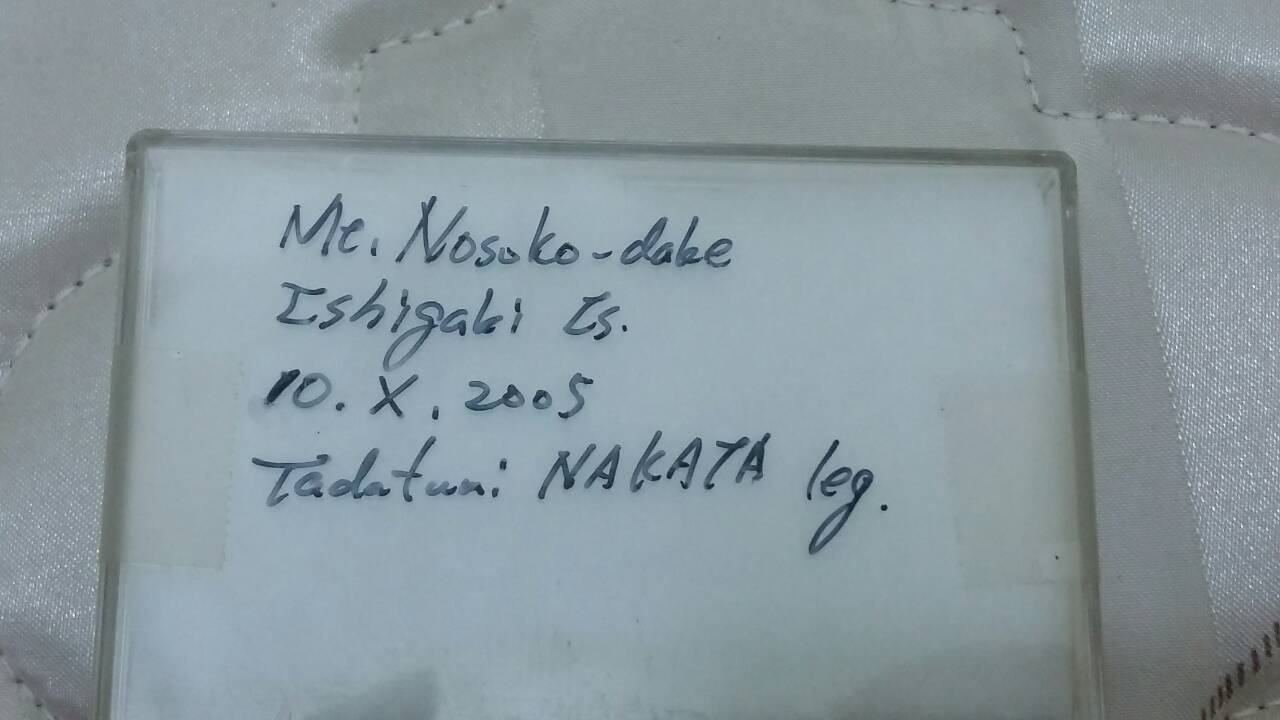 Mt. Nosoko-dake
Ishigaki Is.
10. X. 2005
Tadatuni NAKATA leg.